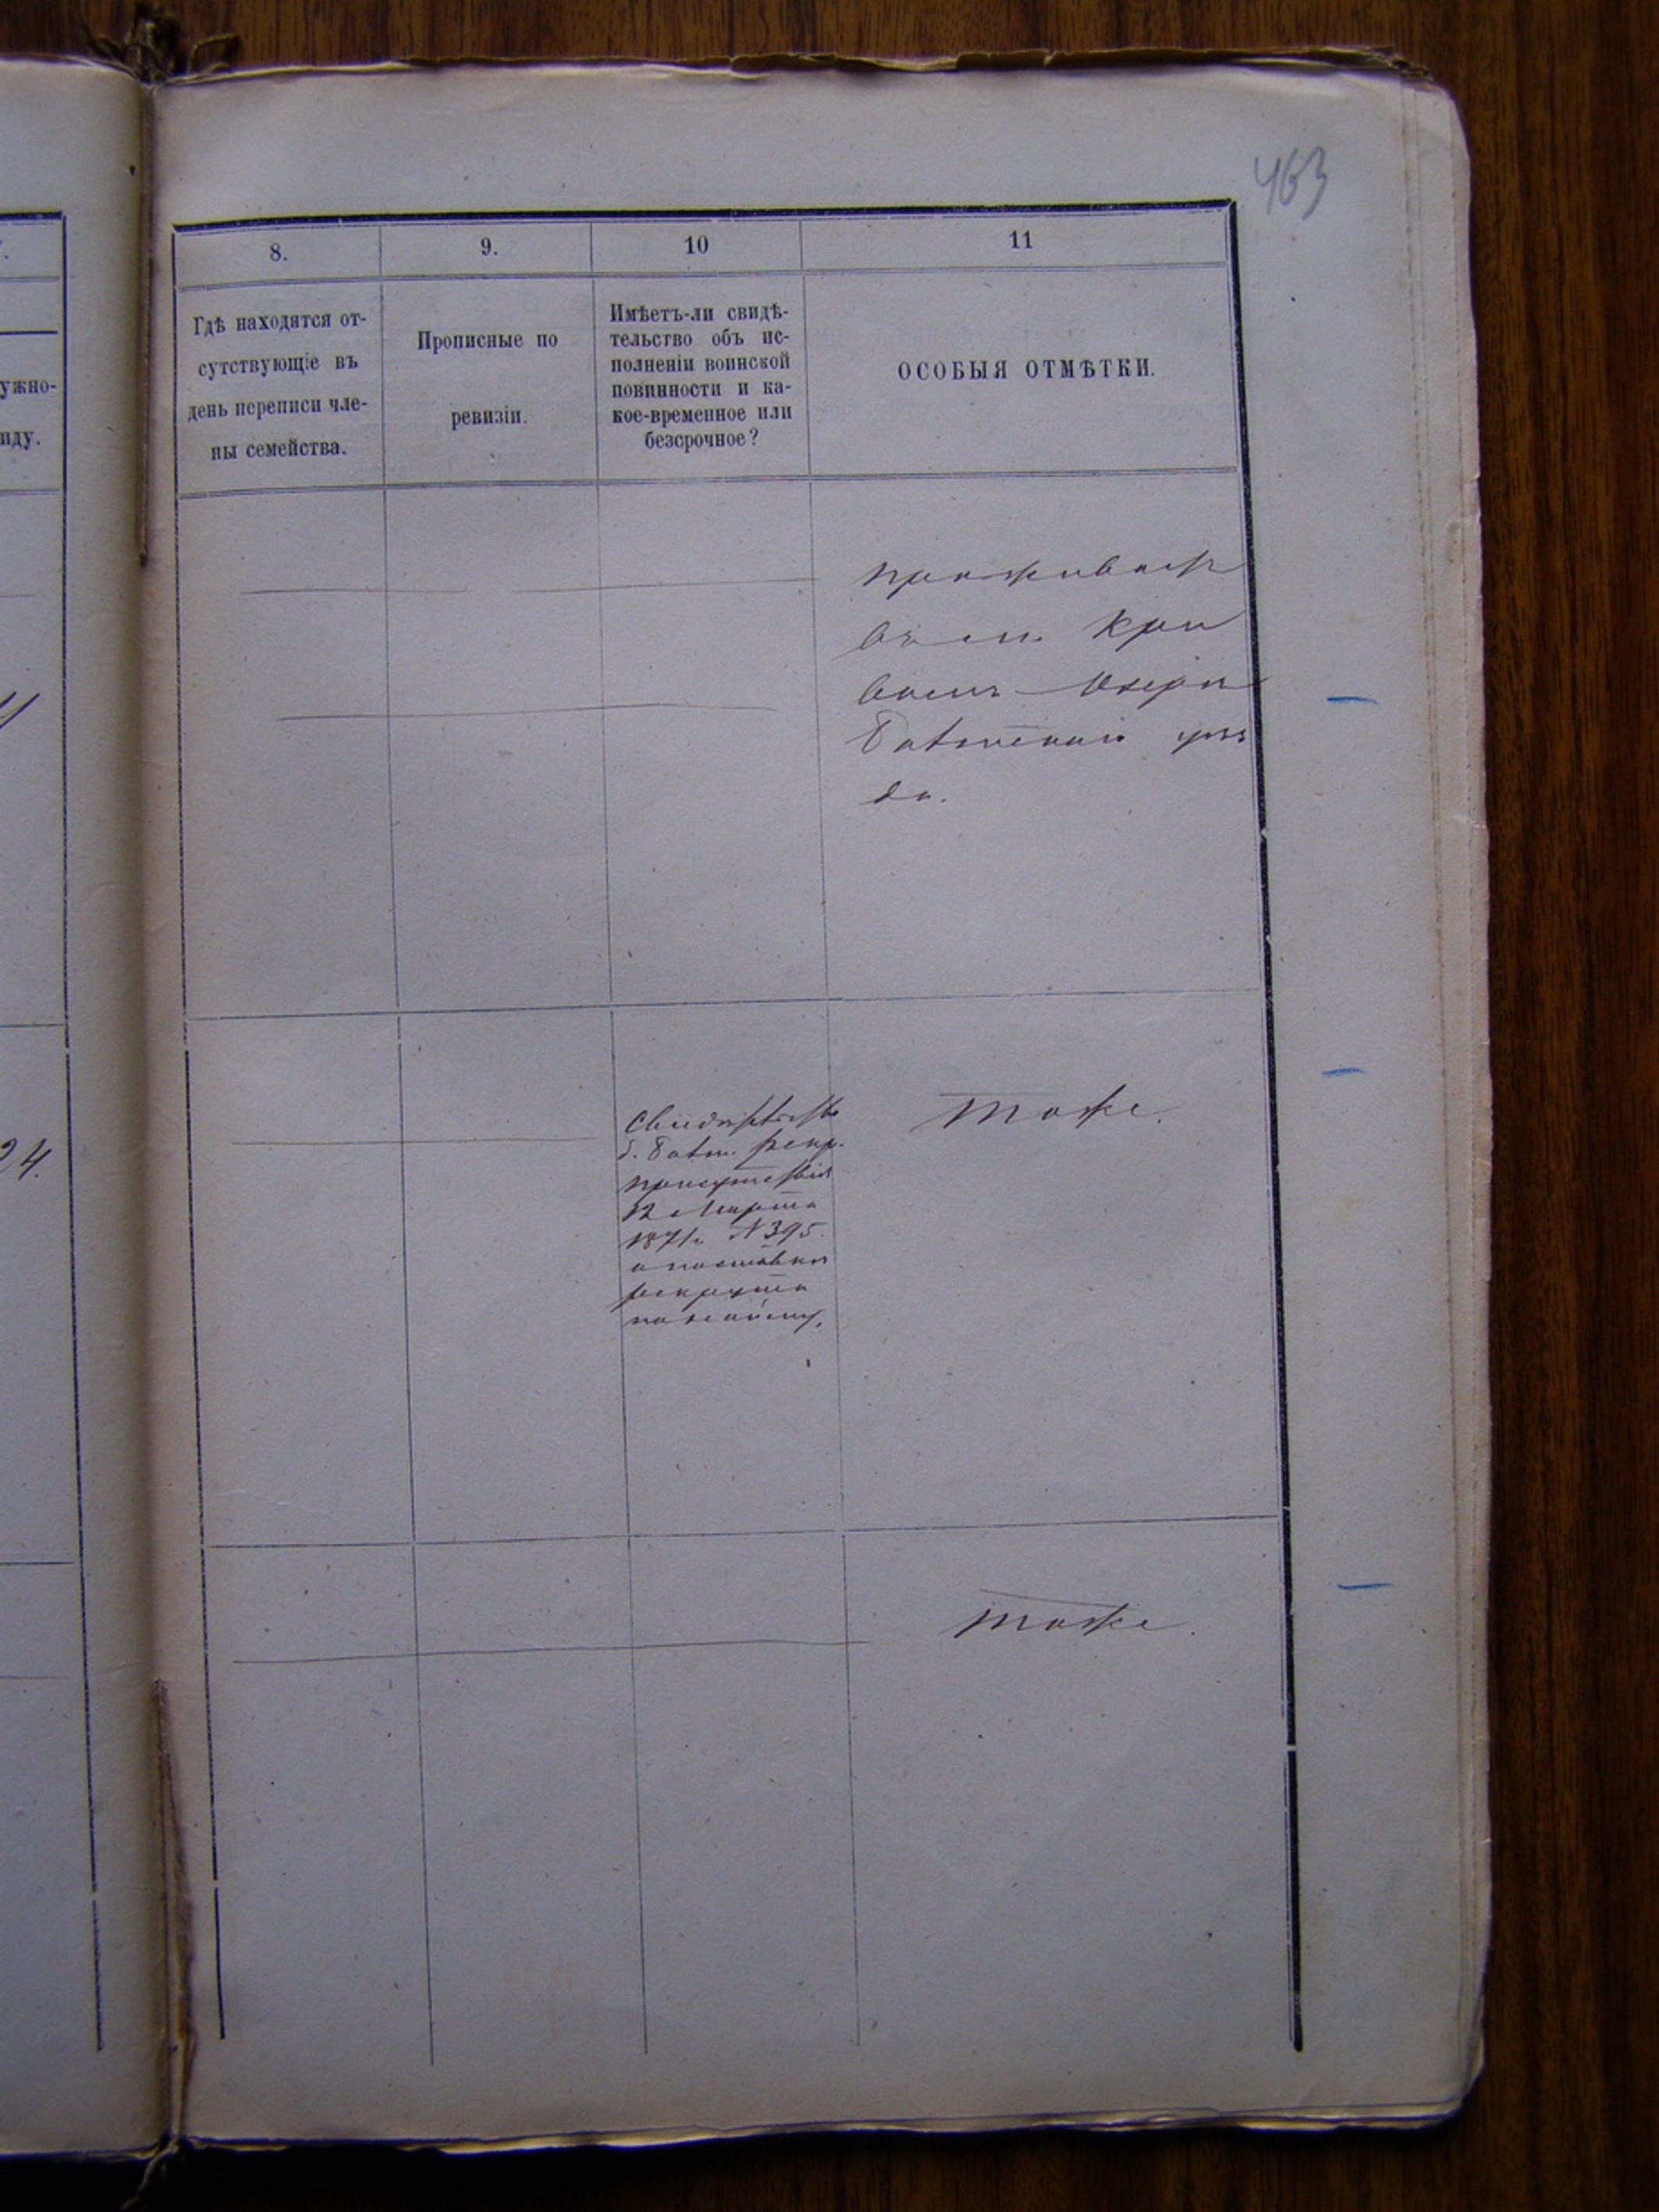 463
8.
9.
10
11
Гдѣ находятся от-
сутствующіе въ
день переписи чле-
ны семейства.
Прописные по
ревизіи.
Имѣетъ-ли свидѣ-
тельство объ ис-
полненіи воинской
повинности и ка-
кое-временное или
безсрочное?
ОСОБЫЯ ОТМѢТКИ.
ужно-
иду.
проживает
въ Кри
вомъ Озерѣ
Балтскаго уѣз
да.
24.
Свидѣтельство
б. Балт. рекр.
присутствія
12 Марта
1871 г. N 395
о поставкѣ
рекрута
по найму.
тоже.
тоже.